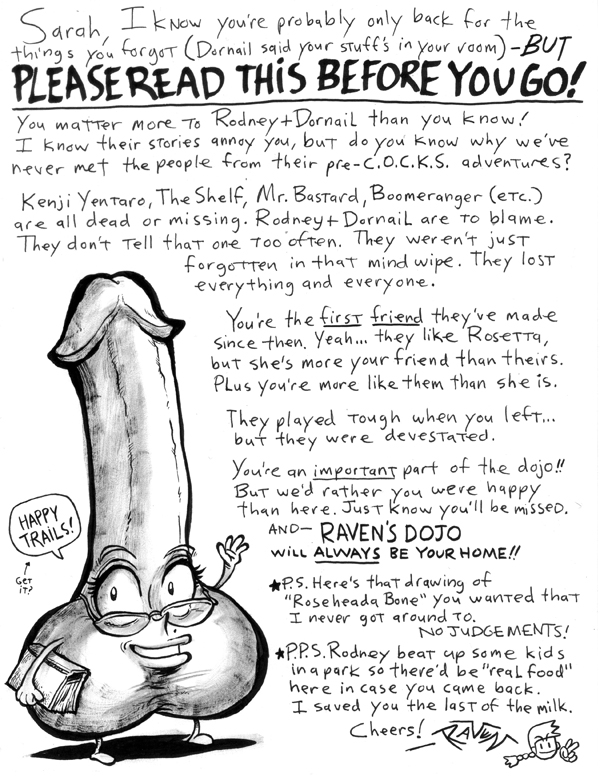 Sarah, I know you're probably only back for the
things you forgot (Dornail said your stuff's in your room) - BUT
PLEASE READ THIS BEFORE YOU GO!
You matter more to Rodney + Dornail than you know!
I know their stories annoy you, but do you know why we've
never met the people from their pre-C.O.C.K.S. adventures?
Kenji Yentaro, The Shelf, Mr. Bastard, Boomeranger (etc.)
are all dead or missing. Rodney + Dornail are to blame.
They don't tell that one too often. They weren't just
forgotten in that mind wipe. They lost
everything and everyone.
You're the first friend they've made
since then. Yeah... they like Rosetta,
but she's more your friend than theirs.
Plus you're more like them than she is.
They played tough when you left...
but they were devestated.
You're an important part of the dojo!!
But we'd rather you were happy
than here. Just know you'll be missed.
AND- RAVEN'S DOJO
WILL ALWAYS BE YOUR HOME!!
HAPPY
TRAILS!
↑
Get
it?
★P.S. Here's that drawing of
"Roseheada Bone" you wanted that
I never got around to.
NO JUDGEMENTS!
★P.P.S. Rodney beat up some kids
in a park so there'd be "real food"
here in case you came back.
I saved you the last of the milk.
Cheers! RAVEN